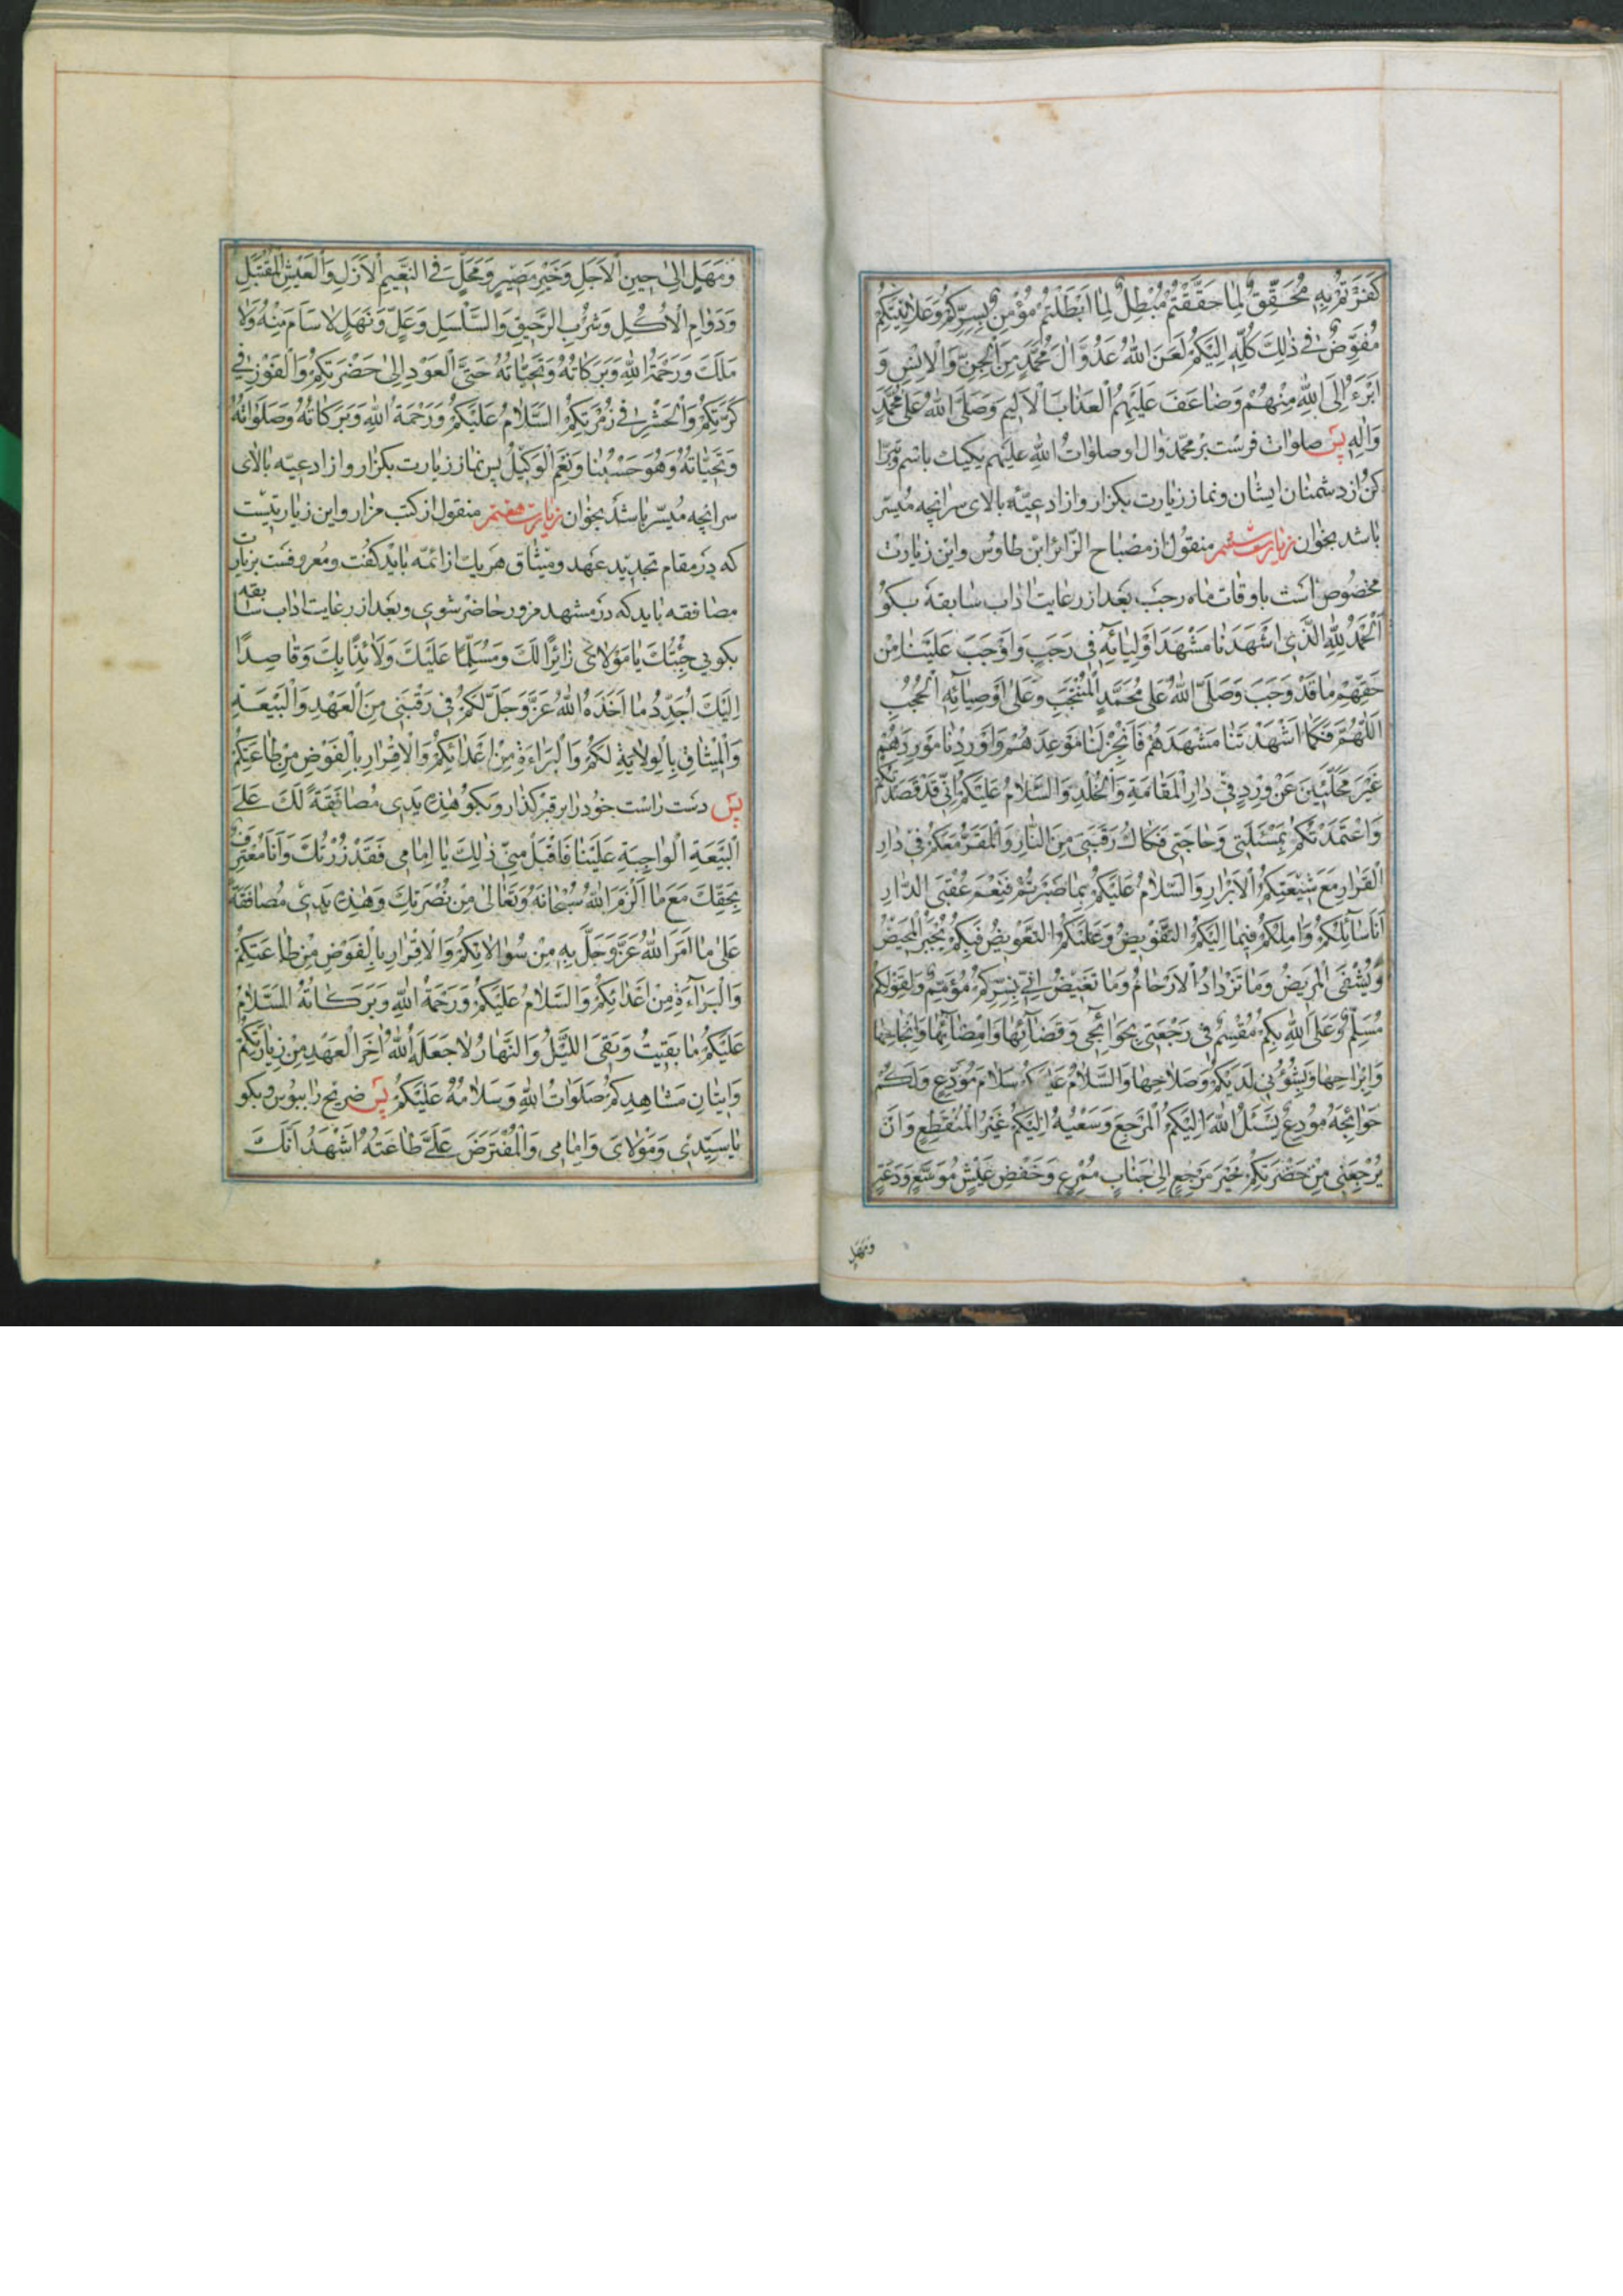 كَفَرْتُمْ بِهِ مُحَقِّقٌ لِمَا حَقَّقْتُمْ مُبْطِلٌ لِمَا اَبْطَلْتُمْ مُؤْمِنٌ بِسِرِّكُمْ وَعَلَانِيَتِكُمْ
مُفَوِّضٌ فِي ذٰلِكَ كُلِّهِ اِلَيْكُمْ لَعَنَ اللهُ عَدُوَّ اٰلَ مُحَمَّدٍ مِنَ الْجِنِّ وَالْاِنْسِ وَ
اَبْرَءُ اِلَى اللهِ مِنْهُمْ وَضَاعَفَ عَلَيْهِمُ الْعَذَابَ الْاَلِيمَ وَصَلَّى اللهُ عَلٰى مُحَمَّدٍ
وَاٰلِهِ پس صلوات فرست بر محمّد وال او صلوات الله عليهم يكيك باسم وتبرّا
كن از دشمنان ايشان ونماز زيارت بكزار واز ادعيّه بالاى سر انچه ميسّر
باشد بخوان زيارت ششم منقول از مصباح الزّائر ابن طاوس واين زيارت
مخصوص است باوقات ماه رجب بعد از رعايت اداب سابقه بكو
اَلْحَمْدُ لِلّٰهِ الَّذِي اَشْهَدَنَا مَشْهَدَ اَوْلِيَائِهِ فِي رَجَبٍ وَاَوْجَبَ عَلَيْنَا مِنْ
حَقِّهِمْ مَا قَدْ وَجَبَ وَصَلَّى اللهُ عَلٰى مُحَمَّدٍ الْمُنْتَجَبِ وَعَلٰى اَوْصِيَائِهِ الْحُجُبِ
اَللّٰهُمَّ فَكَمَا اَشْهَدْتَنَا مَشْهَدَهُمْ فَاَنْجِزْ لَنَا مَوْعِدَهُمْ وَاَوْرِدْنَا مَوْرِدَهُمْ
غَيْرَ مُحَلَّئِينَ عَنْ وِرْدٍ فِي دَارِ الْمُقَامَةِ وَالْخُلْدِ وَالسَّلَامُ عَلَيْكُمْ اِنِّي قَدْ قَصَدْتُكُمْ
وَاعْتَمَدْتُكُمْ بِمَسْئَلَتِي وَحَاجَتِي فَكَاكُ رَقَبَتِي مِنَ النَّارِ وَالْمَقَرُّ مَعَكُمْ فِي دَارِ
الْقَرَارِ مَعَ شِيعَتِكُمُ الْاَبْرَارِ وَالسَّلَامُ عَلَيْكُمْ بِمَا صَبَرْتُمْ فَنِعْمَ عُقْبَى الدَّارِ
اَنَا سَائِلُكُمْ وَاٰمِلُكُمْ فِيمَا اِلَيْكُمُ التَّفْوِيضُ وَعَلَيْكُمُ التَّعْوِيضُ فَبِكُمْ يُجْبَرُ الْمَهِيضُ
وَيُشْفَى الْمَرِيضُ وَمَا تَزْدَادُ الْاَرْحَامُ وَمَا تَغِيضُ اِنِّي بِسِرِّكُمْ مُؤْمِنٌ وَلِقَوْلِكُمْ
مُسَلِّمٌ وَعَلَى اللهِ بِكُمْ مُقْسِمٌ فِي رَجْعَتِي بِحَوَائِجِي وَقَضَائِهَا وَاِمْضَائِهَا وَاِنْجَاحِهَا
وَاِبْرَاحِهَا وَبِشُؤُنِي لَدَيْكُمْ وَصَلَاحِهَا وَالسَّلَامُ عَلَيْكُمْ سَلَامَ مُوَدِّعٍ وَلَكُمْ
حَوَائِجَهُ مُودِعٌ يَسْئَلُ اللهَ اِلَيْكُمُ الْمَرْجِعَ وَسَعْيُهُ اِلَيْكُمْ غَيْرُ الْمُنْقَطِعِ وَاَنْ
يُرْجِعَنِي مِنْ حَضْرَتِكُمْ خَيْرَ مَرْجِعٍ اِلٰى جَنَابٍ مُمْرِعٍ وَخَفْضِ عَيْشٍ مُوَسَّعٍ وَدَعَةٍ
وَمَهَلٍ
وَمَهَلٍ اِلٰى حِينِ الْاَجَلِ وَخَيْرِ مَصِيرٍ وَمَحَلٍّ فِي النَّعِيمِ الْاَزَلِ وَالْعَيْشِ الْمُقْتَبَلِ
وَدَوَامِ الْاُكُلِ وَشُرْبِ الرَّحِيقِ وَالسَّلْسَلِ وَعَلٍّ وَنَهَلٍ لَا سَاَمَ مِنْهُ وَلَا
مَلَلَ وَرَحْمَةُ اللهِ وَبَرَكَاتُهُ وَتَحِيَّاتُهُ حَتَّى الْعَوْدِ اِلٰى حَضْرَتِكُمْ وَالْفَوْزِ فِي
كَرَّتِكُمْ وَالْحَشْرِ فِي زُمْرَتِكُمْ السَّلَامُ عَلَيْكُمْ وَرَحْمَةُ اللهِ وَبَرَكَاتُهُ وَصَلَوَاتُهُ
وَتَحِيَّاتُهُ وَهُوَ حَسْبُنَا وَنِعْمَ الْوَكِيلُ پس نماز زيارت بكزار واز ادعيّه بالاى
سر انچه ميسّر باشد بخوان زيارت هفتم منقول از كتب مزار واين زيارتيست
كه در مقام تجديد عهد وميثاق هر يك از ائمّه بايد كفت ومعروفست بزيارت
مصافقه بايد كه در مشهد مزور حاضر شوى وبعد از رعايت اداب سابقه
بكوئى جِئْتُكَ يَا مَوْلَايَ زَائِرًا لَكَ وَمُسَلِّمًا عَلَيْكَ وَلَائِذًا بِكَ وَقَاصِدًا
اِلَيْكَ اُجَدِّدُ مَا اَخَذَهُ اللهُ عَزَّ وَجَلَّ لَكُمْ فِي رَقَبَتِي مِنَ الْعَهْدِ وَالْبَيْعَةِ
وَالْمِيثَاقِ بِالْوِلَايَةِ لَكُمْ وَالْبَرَاءَةِ مِنْ اَعْدَائِكُمْ وَالْاِقْرَارِ بِالْفَرْضِ مِنْ طَاعَتِكُمْ
پس دست راست خود را بر قبر كذار وبكو هٰذِهِ يَدِي مُصَافَقَةً لَكَ عَلَى
الْبَيْعَةِ الْوَاجِبَةِ عَلَيْنَا فَاقْبَلْ مِنِّي ذٰلِكَ يَا اِمَامِي فَقَدْ زُرْتُكَ وَاَنَا مُعْتَرِفٌ
بِحَقِّكَ مَعَ مَا اَلْزَمَ اللهُ سُبْحَانَهُ وَتَعَالٰى مِنْ نُصْرَتِكَ وَهٰذِهِ يَدِي مُصَافَقَةً
عَلٰى مَا اَمَرَ اللهُ عَزَّ وَجَلَّ بِهِ مِنْ مُوَالَاتِكُمْ وَالْاِقْرَارِ بِالْفَرْضِ مِنْ طَاعَتِكُمْ
وَالْبَرَاءَةِ مِنْ اَعْدَائِكُمْ وَالسَّلَامُ عَلَيْكُمْ وَرَحْمَةُ اللهِ وَبَرَكَاتُهُ السَّلَامُ
عَلَيْكُمْ مَا بَقِيتُ وَبَقِيَ اللَّيْلُ وَالنَّهَارُ لَا جَعَلَهُ اللهُ اٰخِرَ الْعَهْدِ مِنْ زِيَارَتِكُمْ
وَاِتْيَانِ مَشَاهِدِكُمْ صَلَوَاتُ اللهِ وَسَلَامُهُ عَلَيْكُمْ پس ضريح را ببوس وبكو
يَا سَيِّدِي وَمَوْلَايَ وَاِمَامِي وَالْمُفْتَرَضَ عَلَيَّ طَاعَتُهُ اَشْهَدُ اَنَّكَ